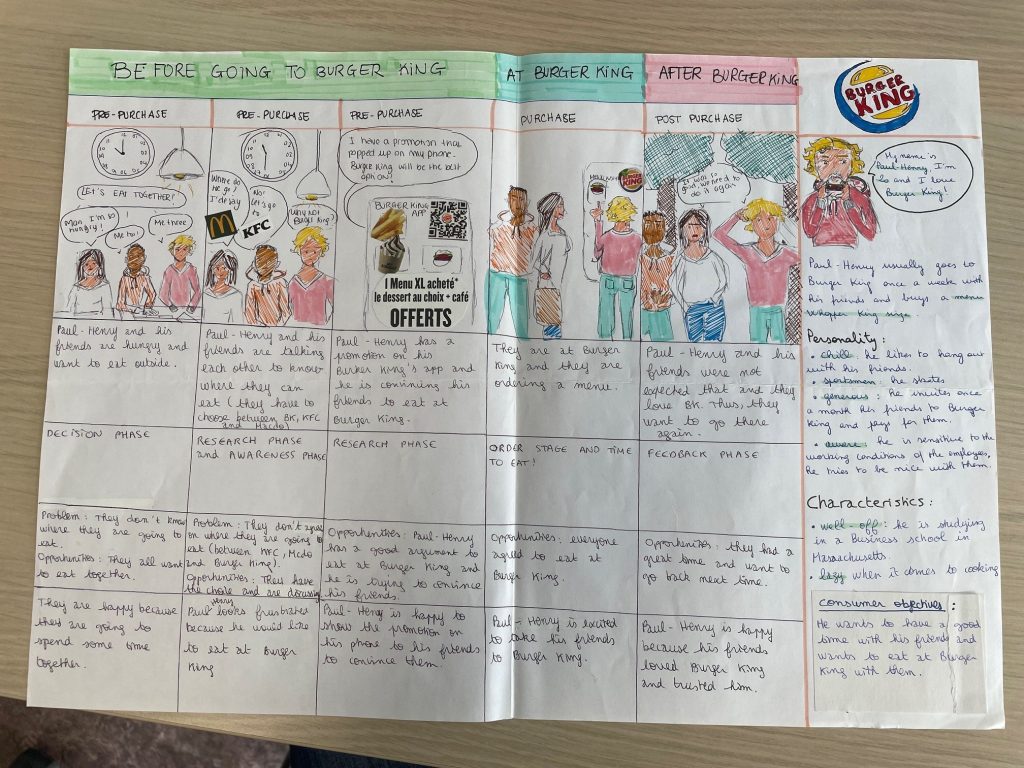 BEFORE GOING TO BURGER KING
AT BURGER KING
AFTER BURGER KING
BURGER
KING
PRE-PURCHASE
PRE-PURCHASE
PRE-PURCHASE
PURCHASE
POST PURCHASE
LET'S EAT TOGETHER!
Man, I'm so
hungry!
Me too!
Me three
Where do
we go?
I'd say
No!
Let's go
to
KFC
Why not
Burger King?
I have a promotion that
popped up on my phone.
Burger King will be the best
option!
BURGER KING
APP
1 Menu XL acheté*
le dessert au choix + café
OFFERTS
BURGER
KING
It was so
good, we need to
do it again
My name is
Paul-Henry, I'm
20 and I love
Burger King!
Paul-Henry and his
friends are hungry and
want to eat outside.
Paul-Henry and his
friends are talking
each other to know
where they can
eat (they have to
choose between BK, KFC
and Macdo)
Paul-Henry has a
promotion on his
Burker King's app and
he is convincing his
friends to eat at
Burger King.
They are at Burger
King and they are
ordering a menu.
Paul-Henry and his
friends were not
expected that and they
love BK. Thus, they
want to go there
again.
DECISION PHASE
RESEARCH PHASE
and AWARENESS PHASE
RESEARCH PHASE
ORDER STAGE AND TIME
TO EAT!
FEEDBACK PHASE
Problem: They don't know
where they are going to
eat.
Opportunities: They all want
to eat together.
Problem: They don't agree
on where they are going to
eat (between KFC, Mcdo
and Burger King).
Opportunities: They have
the choice and are discussing
Opportunities: Paul-Henry
has a good argument to
eat at Burger King and
he is trying to convince
his friends
Opportunities: everyone
agreed to eat at
Burger King.
Opportunities: they had a
great time and want to
go back next time.
They are happy because
they are going to
spend some time
together.
Paul Henry looks frustrated
because he would like
to eat at Burger
King
Paul-Henry is happy to
show the promotion on
his phone to his friends
to convince them.
Paul-Henry is excited
to take his friends
to Burger King.
Paul-Henry is happy
because his friends
loved Burger King
and trusted him.
Paul-Henry usually goes to
Burger King once a week with
his friends and buys a menu
whopper king size.
Personality:
• chill: he likes to hang out
with his friends.
• sportsman: he skates
• generous: he invites once
a month his friends to Burger
King and pays for them.
• aware: he is sensitive to the
working conditions of the employees,
he tries to be nice with them.
Characteristics:
• well-off: he is studying
in a Business school in
Massachusetts.
• lazy when it comes to cooking
Consumer objectives:
He wants to have a good
time with his friends and
wants to eat at Burger
King with them.